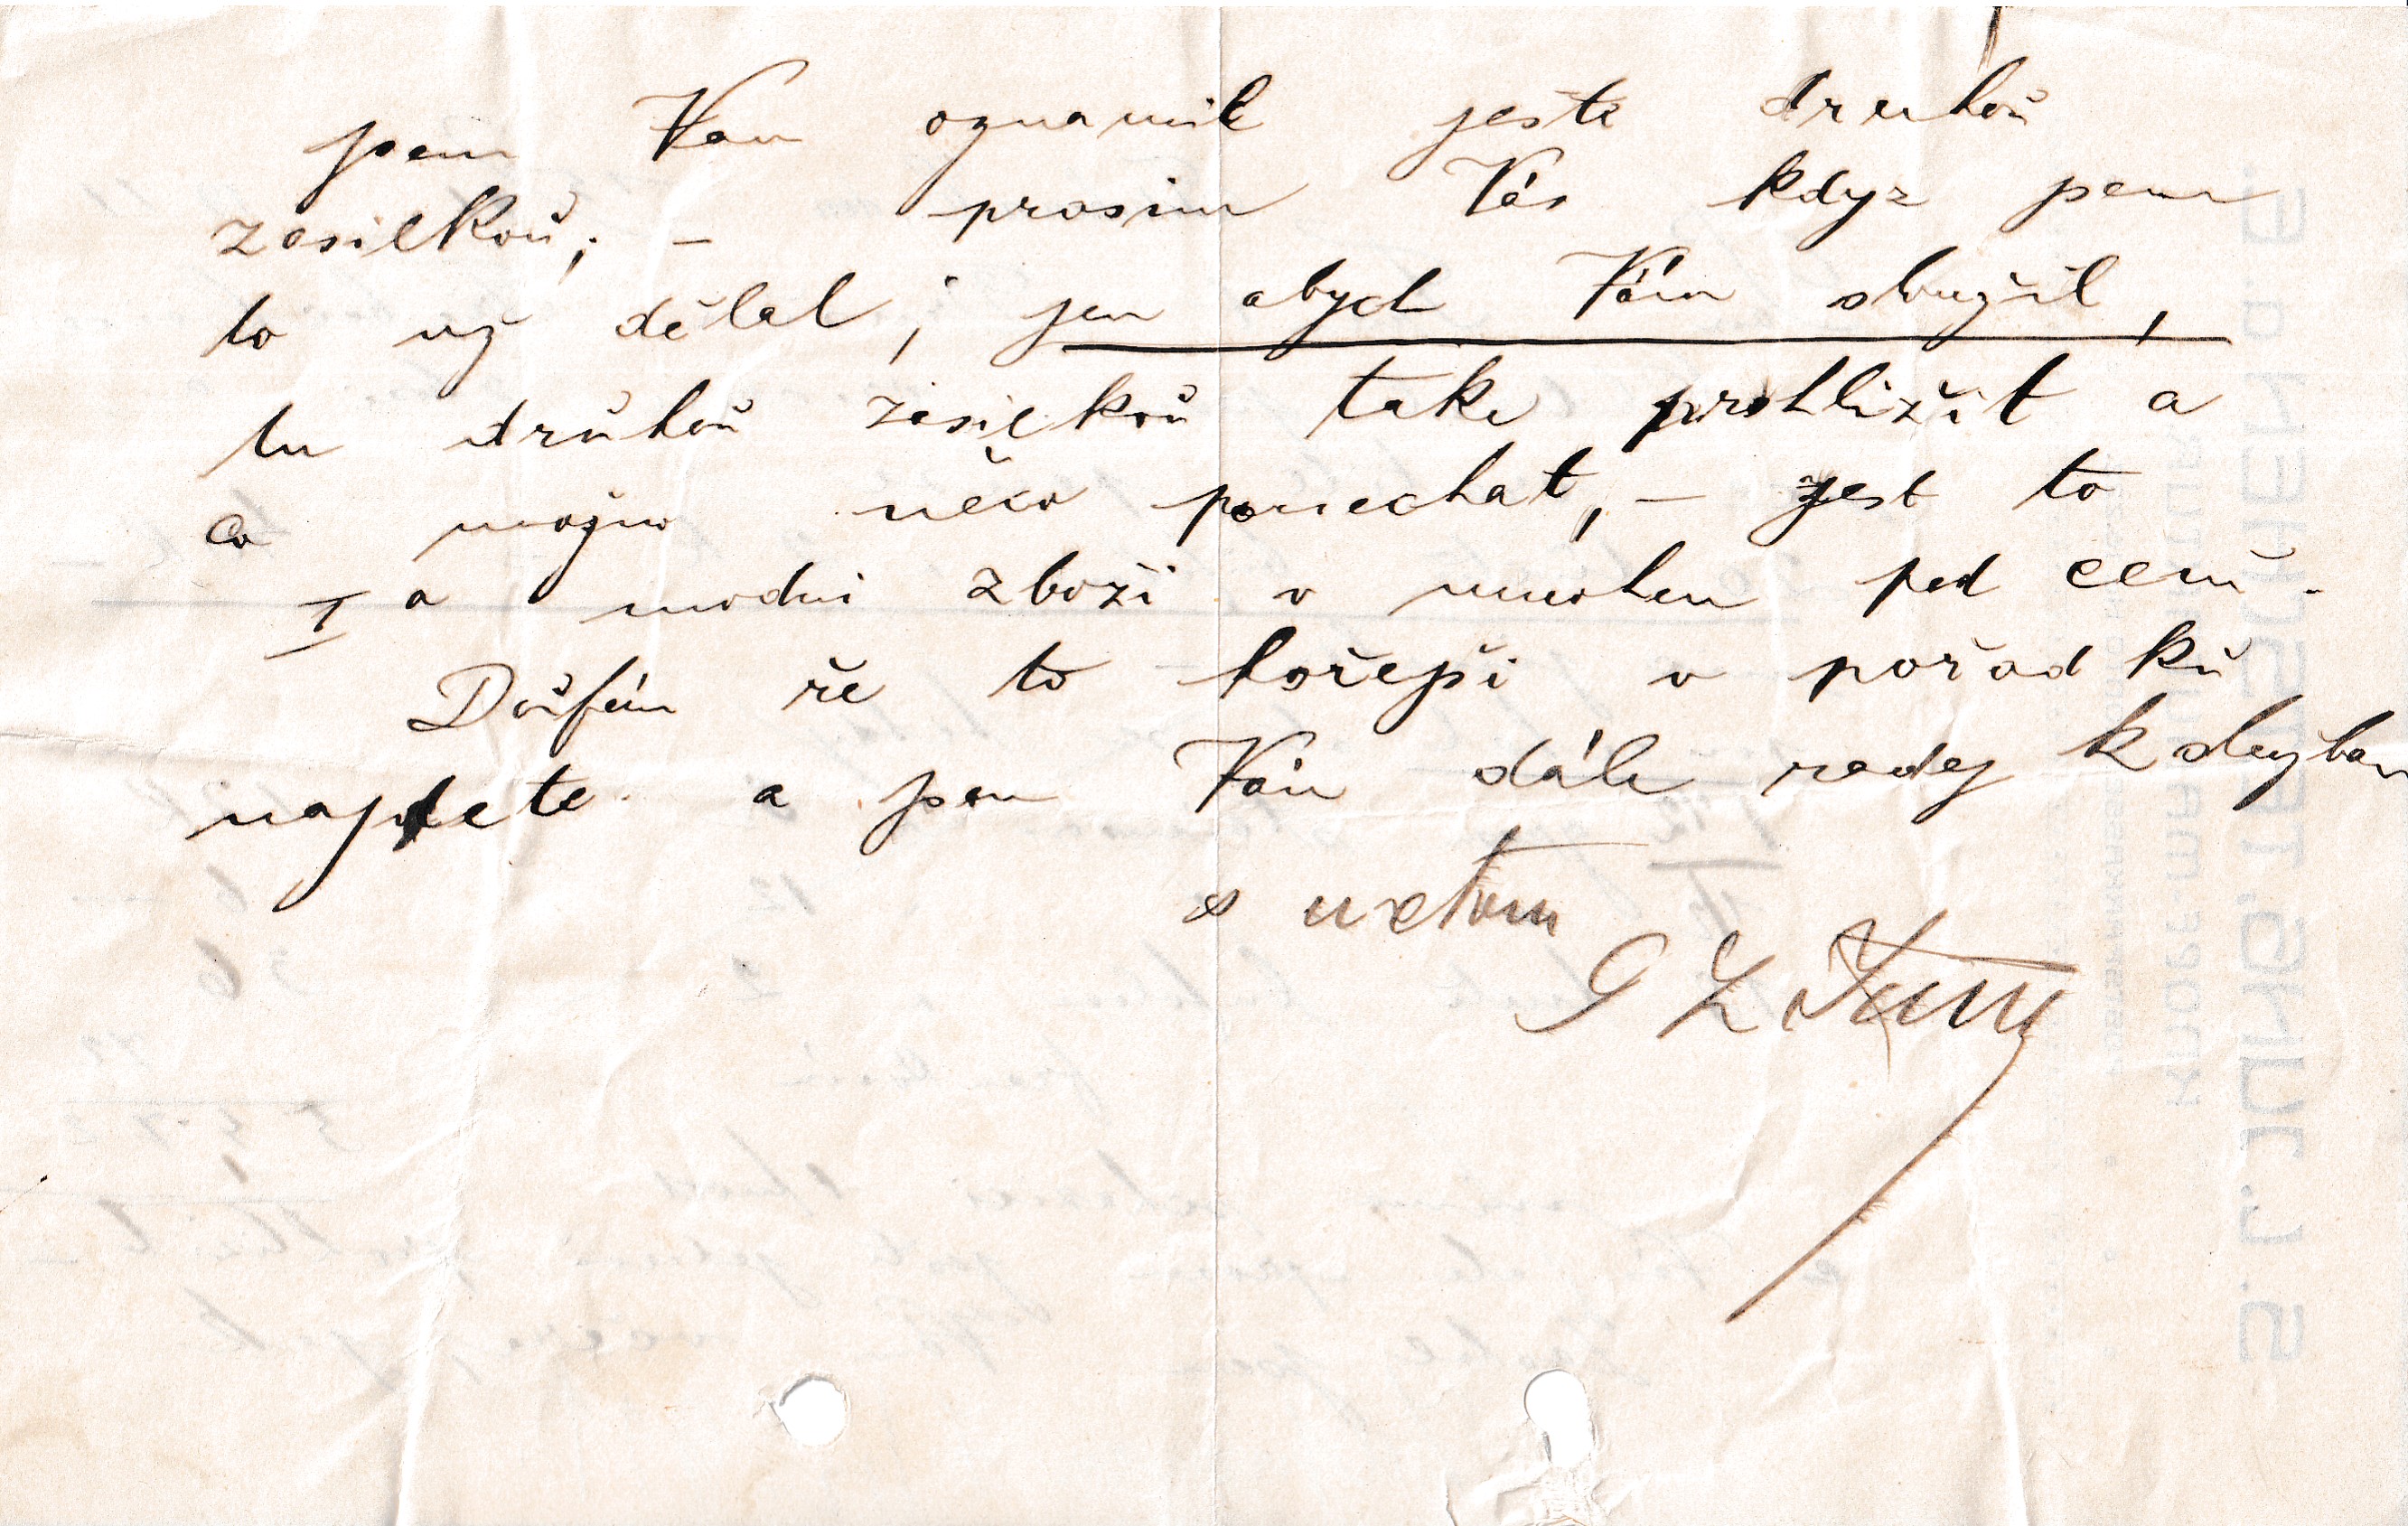 jsem Vam oznamil jestě druhoŭ
zasilkoŭ; – prosim Vás kdyz jsem
to už dělal, jen abych Vám sloužil,
tu drŭhoŭ zasilkoŭ take prohližit a
co možno něco ponechat, – jest to
I a modni zboži v mnohem pod cenŭ.
Doŭfám že to hořejši v pořadkŭ
najdete a jsem Vám dále radej k sluzbam
s uctou